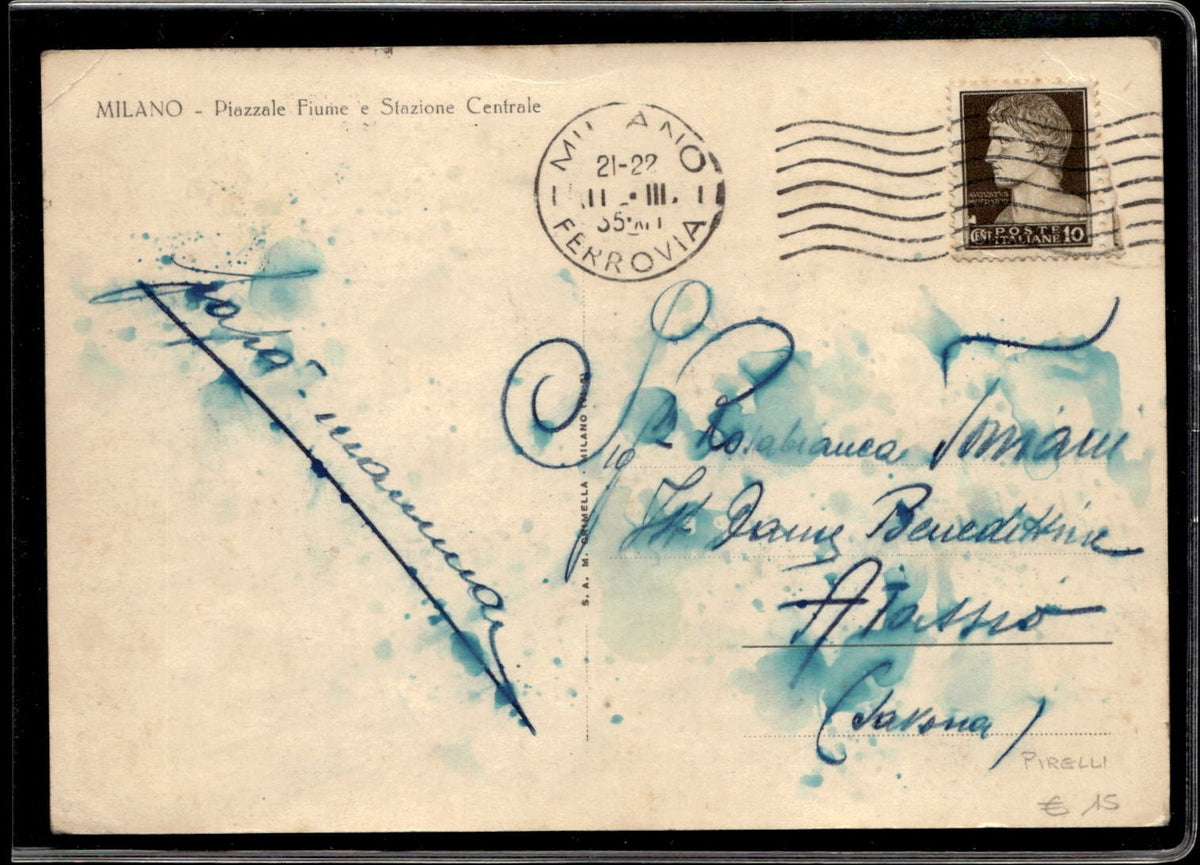 MILANO - Piazzale Fiume e Stazione Centrale
MILANO
21-22
III
35 XIII
FERROVIA
POSTE
ITALIANE 10
papà - mamma
S. A. M. GRIMELLA - MILANO
Rosabianca
Ist Dame Benedettine
Alassio
(Savona)
PIRELLI
€ 15